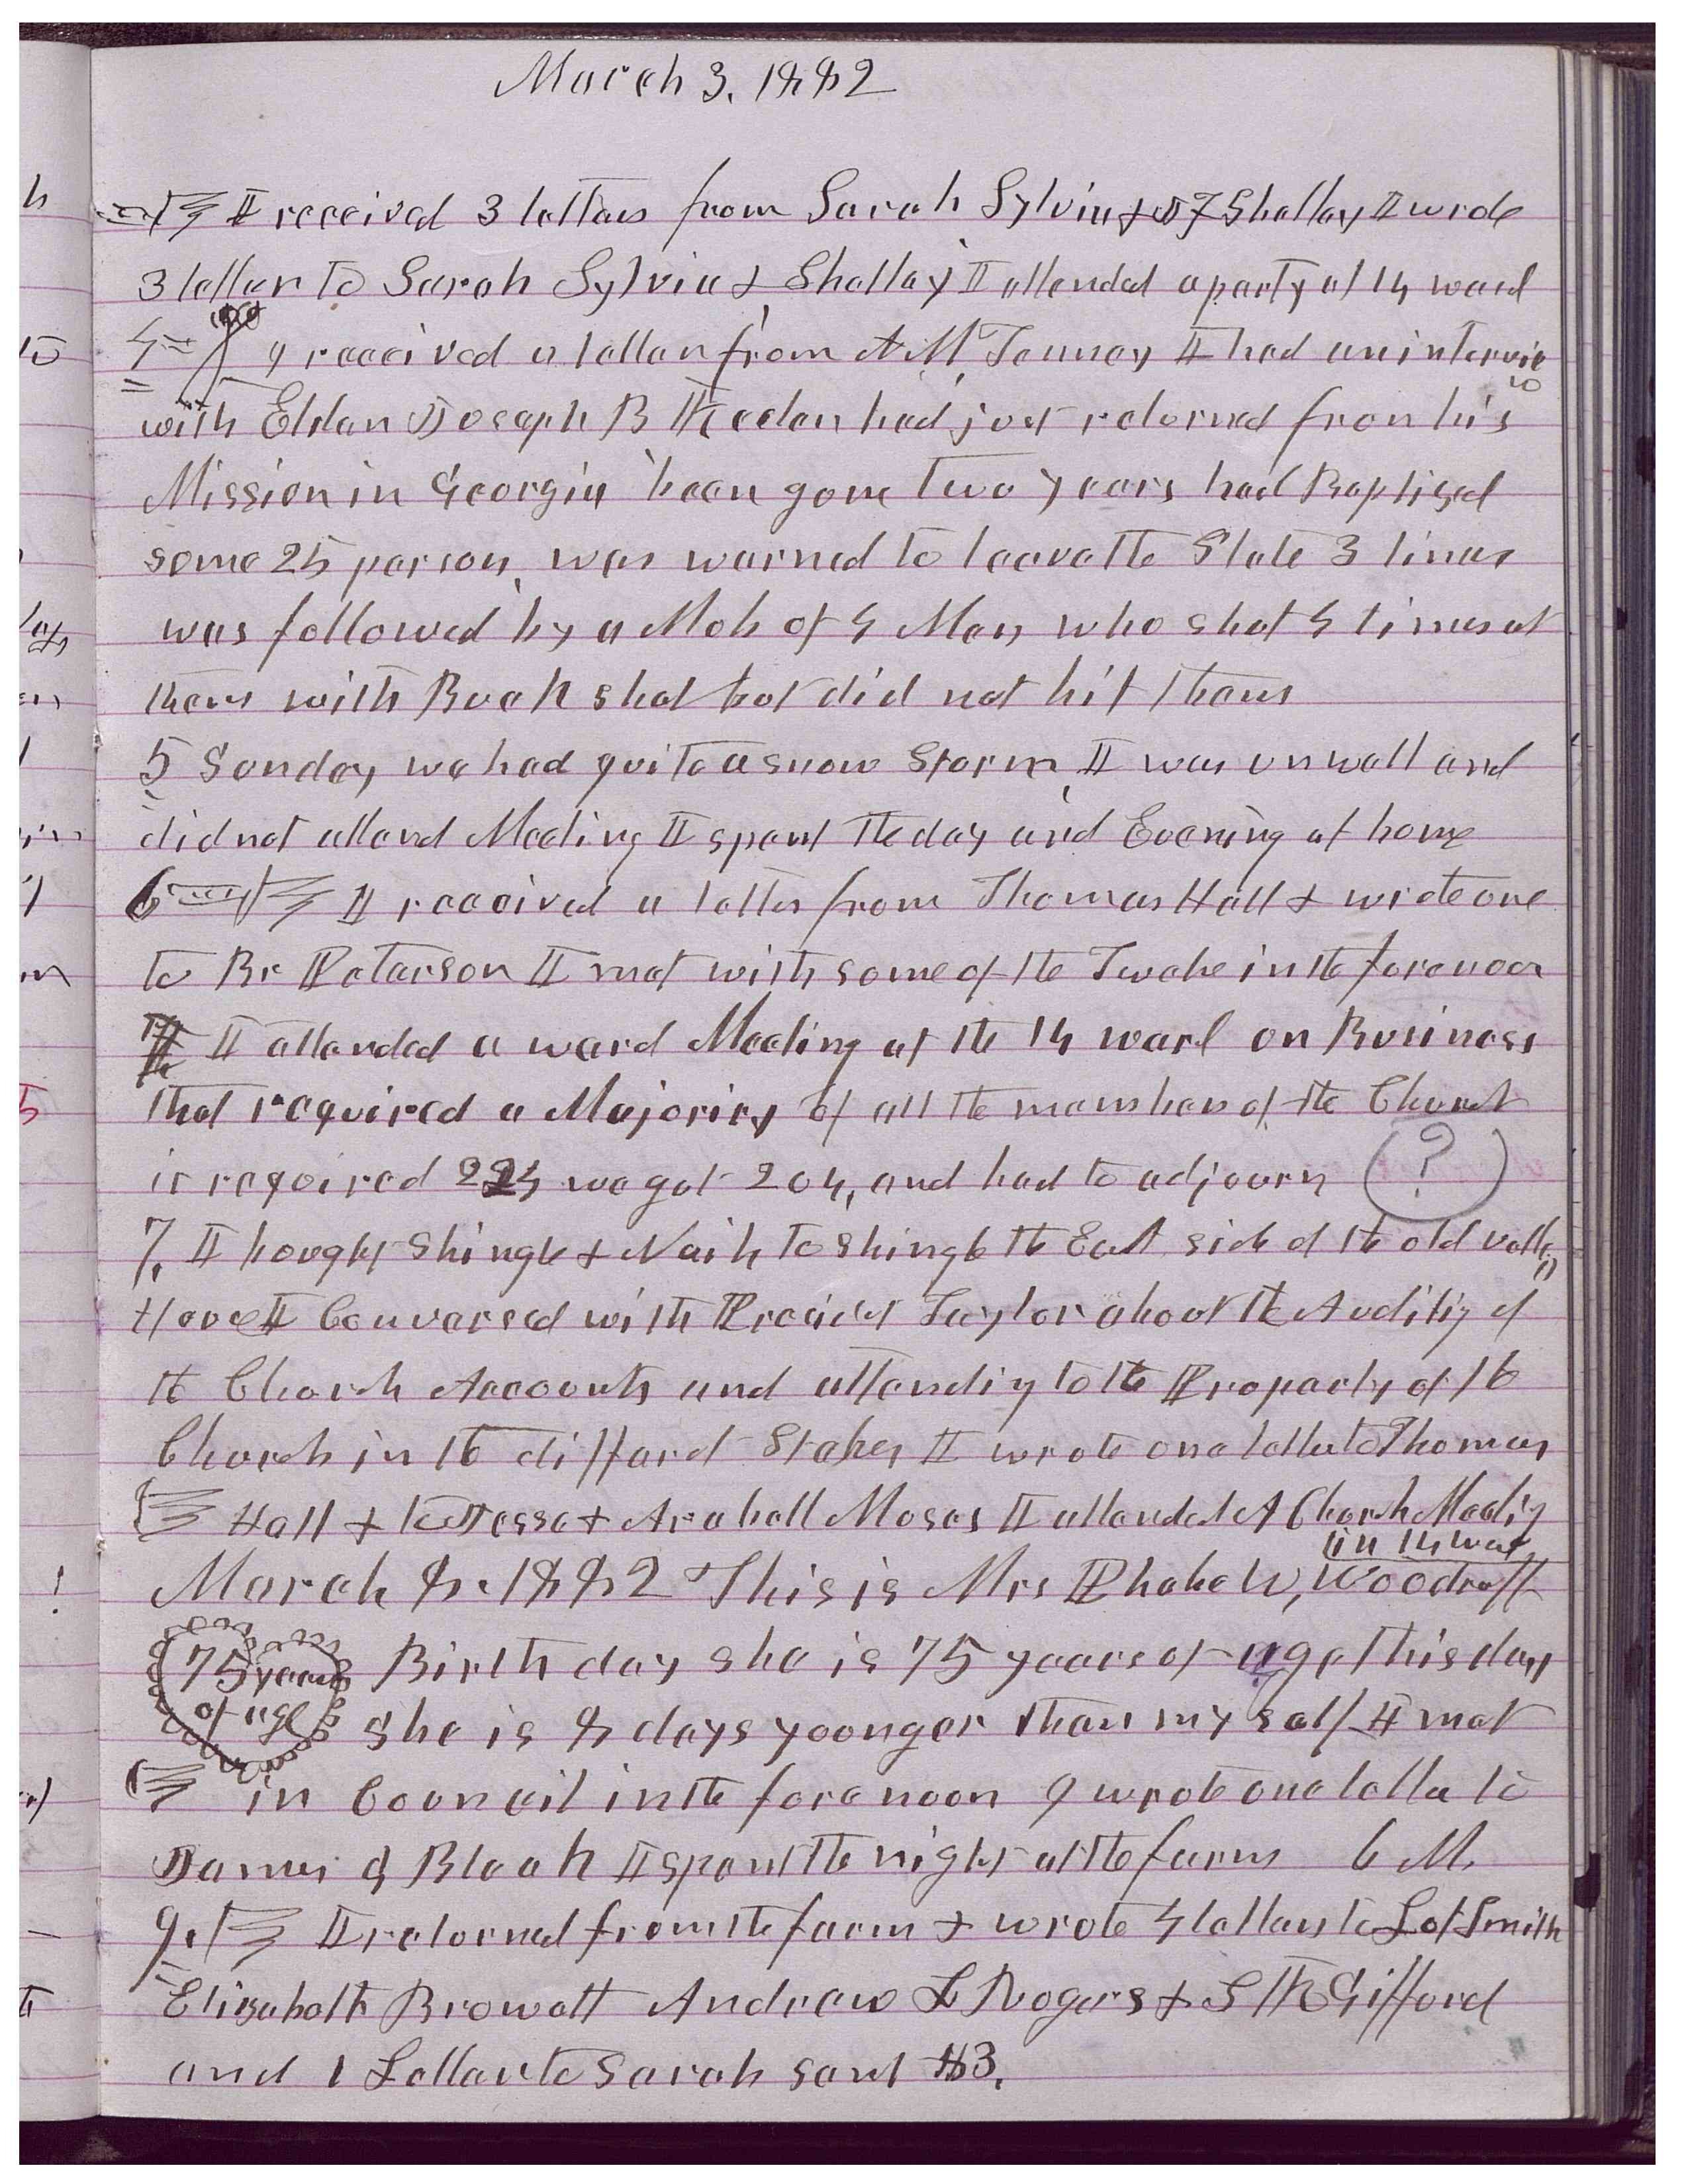 March 3, 1882
I received 3 letters from Sarah Sylvia & D F Shelley I wrote
3 letter to Sarah Sylvia & Shelley I attended a party at 14 ward
4 I received a letter from A M Tenney I had an interview
with Elder Joseph B Keeler had just returned from his
Mission in Georgia been gone two years had Baptised
some 25 person, was warned to leave the State 3 times
was followed by a Mob of 4 Men who shot 4 times at
them with Buck shot but did not hit them
5 Sunday we had quite a snow storm I was unwell and
did not attend Meeting I spent the day and Evening at home
6 I received a letter from Thomas Hall & wrote one
to Br Peterson I met with some of the Twelve in the forenoon
I attended a ward Meeting at the 14 ward on Business
that required a Majority of all the members of the Church
it required 224 we got 204, and had to adjourn (?)
7, I bought Shingle & Nails to shingle the East side of the old valley
House I Conversed with Presidet Taylor about the Auditig of
the Church Accounts and attendig to the Property of the
Church in the differd Stakes I wrote one letter to Thomas
Hall & to Jesse & Arabell Moses I attended A Church Meetig
in 14 ward
March 8. 1882 This is Mrs Phebe W, Woodruff
75 years of age
Birth day she is 75 years of age this day
she is 8 days younger than my self I met
in Council in the forenoon I wrote one letter to
James Bleak I spent the night at the farm 6 M.
9. I returned from the farm & wrote 4 letters to Lot Smith
Elizabeth Browett Andrew L Rogers & S K Gifford
and 1 Letter to Sarah sent $3.